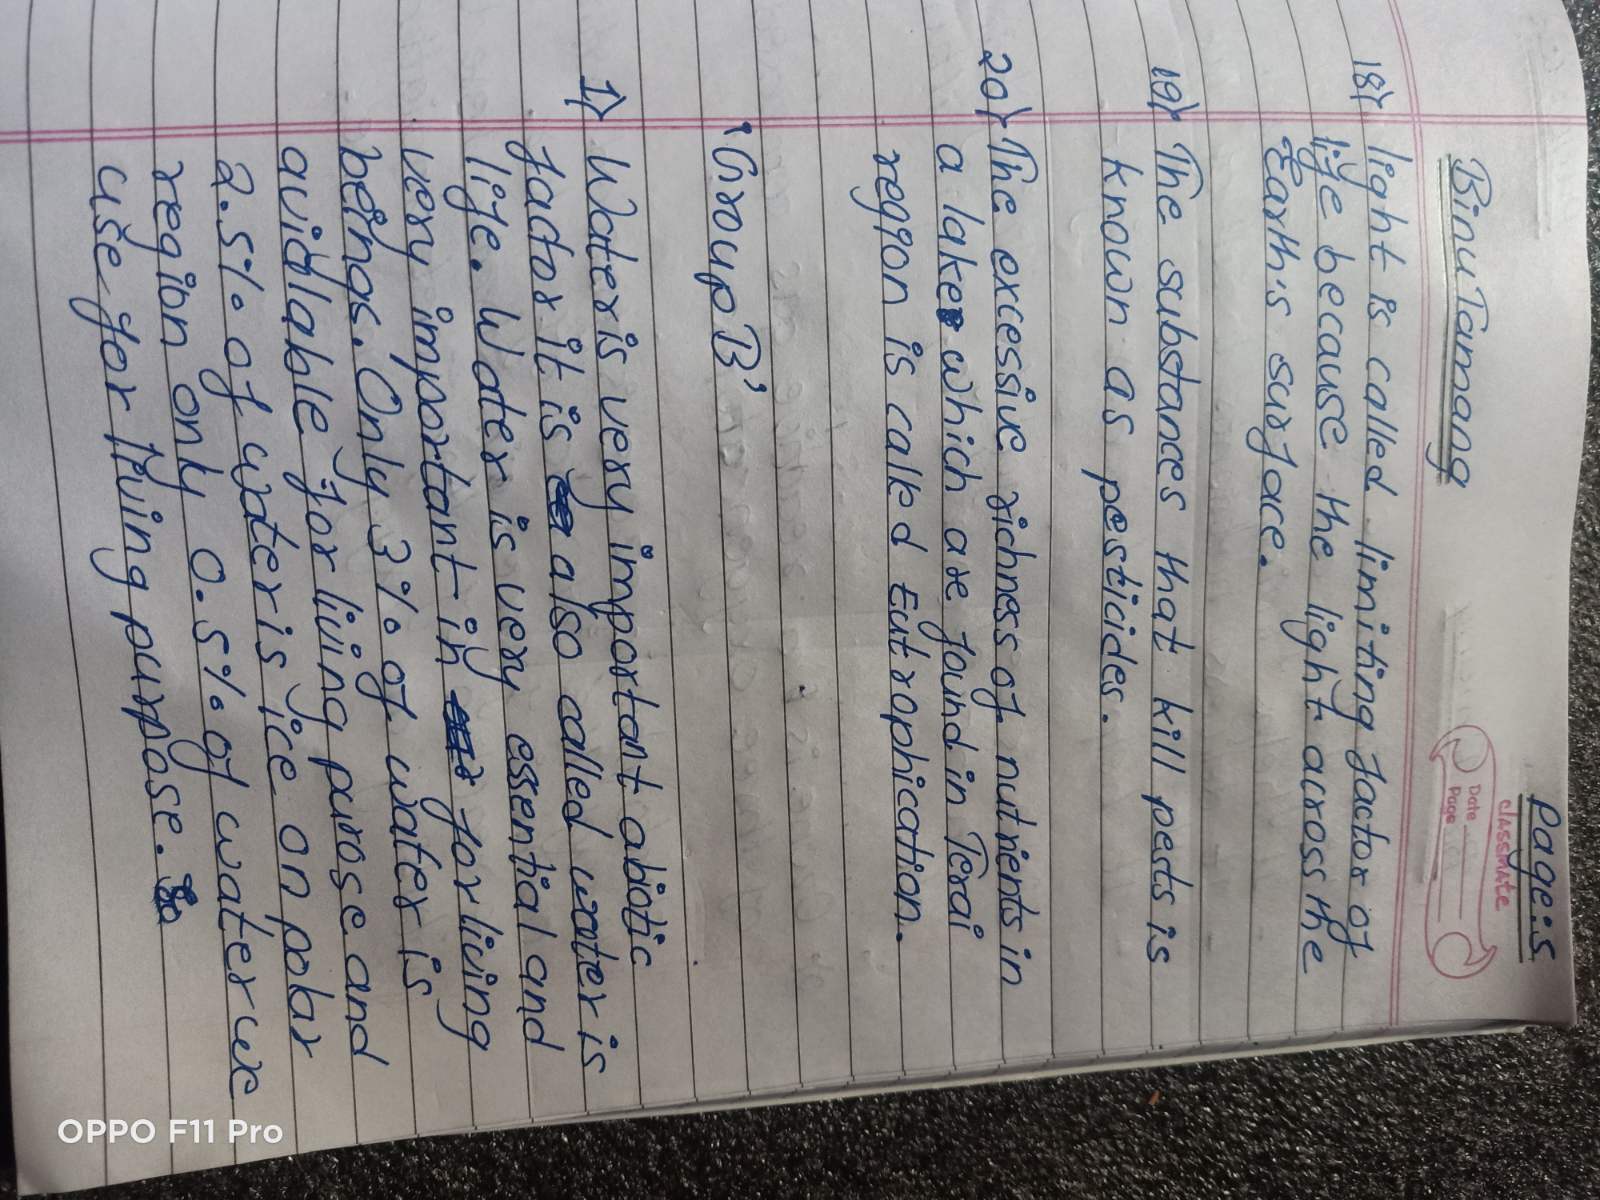 Page:5
classmate
Date
Page
Binu Tammang
18) light is called limiting factor of
life because the light across the
Earth's surface.
19) The substances that kill pests is
known as pesticides.
20) The excessive richness of nutrients in
a lake which are found in Terai
region is called Eutrophication.
'Group B'
1) Water is very important abiotic
factor it is also called water is
life. Water is very essential and
very important in for living
beings. Only 3% of water is
avidlable for living purose and
2.5% of water is ice on polar
region only 0.5% of water we
use for living purpose.
OPPO F11 Pro